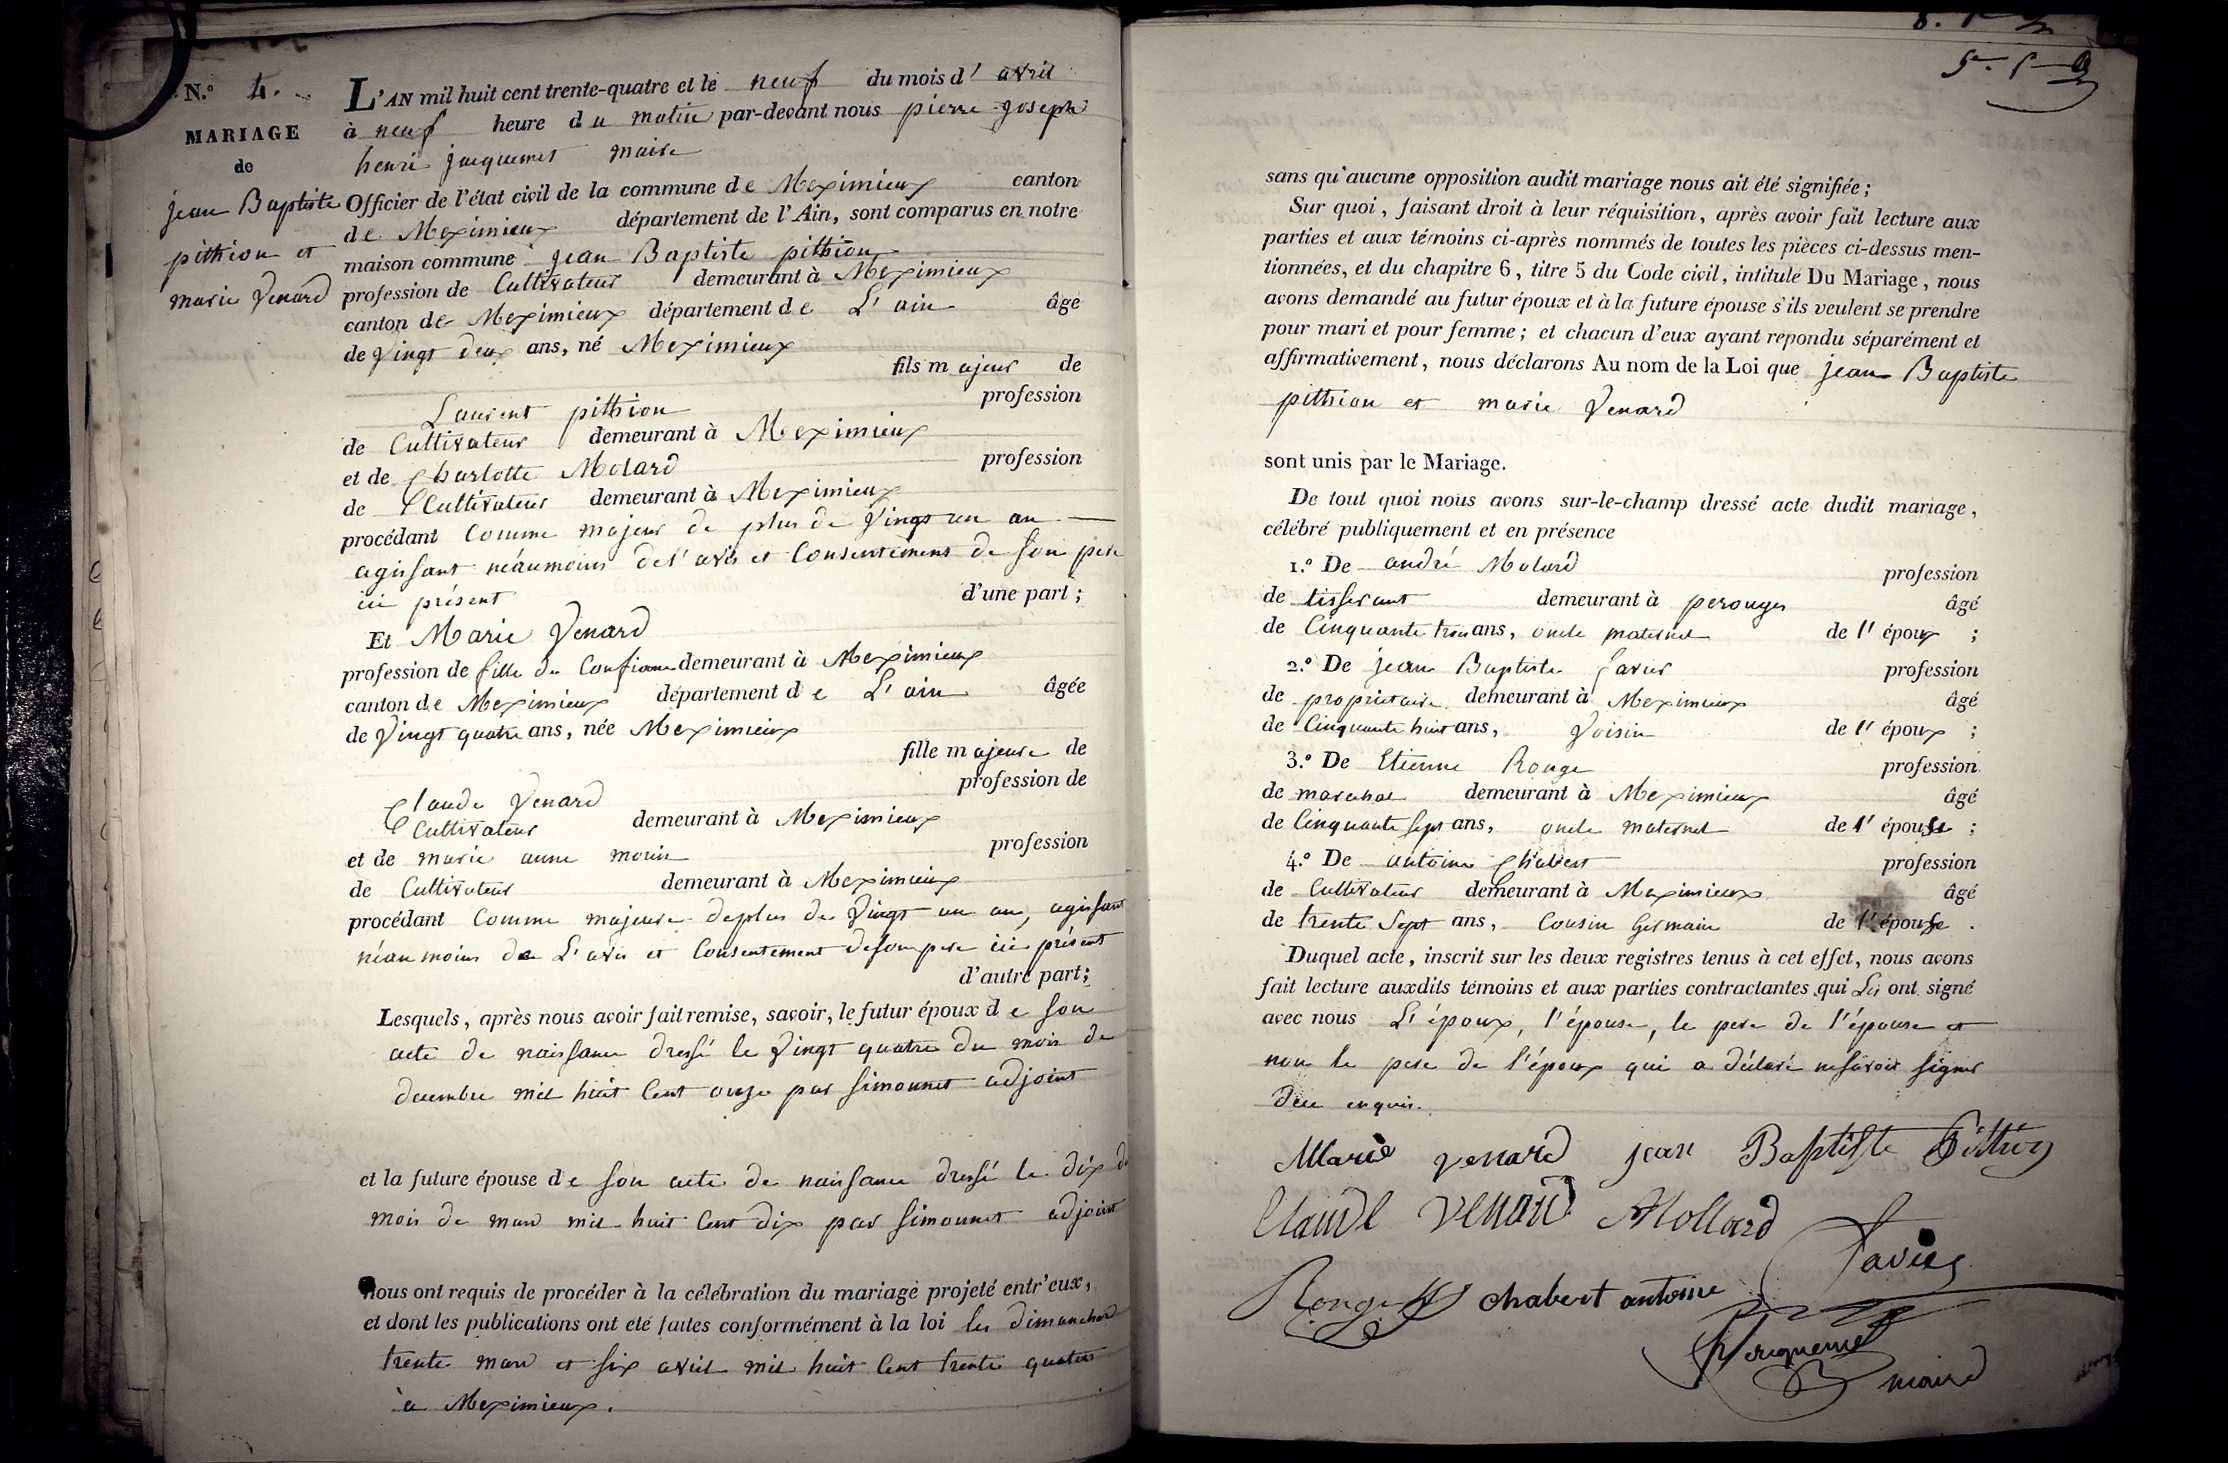 N.° 4.
MARIAGE
de
jean Baptiste
pithion et
marie Venard
L'AN mil huit cent trente-quatre et le neuf du mois d' avril
à neuf heure du matin par-devant nous pierre joseph
henri jacquemet maire
Officier de l'état civil de la commune de Meximieux canton
de Meximieux département de l'Ain, sont comparus en notre
maison commune jean Baptiste pithion
profession de Cultivateur demeurant à Meximieux
canton de Meximieux département de L'ain âgé
de Vingt deux ans, né Meximieux
fils majeur de
Laurent pithion profession
de Cultivateur demeurant à Meximieux
et de Charlotte Molard profession
de Cultivateur demeurant à Meximieux
procédant Comme majeur de plus de Vingt un an
agissant néaumoins de l'avis et Consentement de son pere
ici présent d'une part ;
Et Marie Venard
profession de fille de Confiance demeurant à Meximieux
canton de Meximieux département de L'ain âgée
de Vingt quatre ans, née Meximieux
fille majeure de
Claude Venard profession de
Cultivateur demeurant à Meximieux
et de marie anne morin profession
de Cultivateur demeurant à Meximieux
procédant Comme majeure deplus de Vingt un an, agissant
néau moins de L'avis et Consentement deson pere ici présent
d'autre part ;
Lesquels, après nous avoir fait remise, savoir, le futur époux de son
acte de naissance dressé le Vingt quatre du mois de
decembre mil huit Cent onze par Simonnet adjoint
et la future épouse de son acte de naissance dressé le dix du
mois de mars mil huit Cent dix par Simonnet adjoint
nous ont requis de procéder à la célébration du mariage projeté entr'eux,
et dont les publications ont été faites conformément à la loi les dimanches
trente mars et six avril mil huit Cent trente quatre
à Meximieux.
sans qu'aucune opposition audit mariage nous ait été signifiée ;
Sur quoi, faisant droit à leur réquisition, après avoir fait lecture aux
parties et aux témoins ci-après nommés de toutes les pièces ci-dessus men-
tionnées, et du chapitre 6, titre 5 du Code civil, intitulé Du Mariage, nous
avons demandé au futur époux et à la future épouse s'ils veulent se prendre
pour mari et pour femme ; et chacun d'eux ayant repondu séparément et
affirmativement, nous déclarons Au nom de la Loi que jean Baptiste
pithion et marie Venard
sont unis par le Mariage.
De tout quoi nous avons sur-le-champ dressé acte dudit mariage,
célébré publiquement et en présence
1.° De andré Molard profession
de tisserant demeurant à perouges âgé
de Cinquante trois ans, oncle maternel de l'époux ;
2.° De jean Baptiste favier profession
de proprietaire demeurant à Meximieux âgé
de Cinquante huit ans, Voisin de l'époux ;
3.° De Etienne Rouge profession
de marechal demeurant à Meximieux âgé
de Cinquante sept ans, oncle maternel de l'épouse ;
4.° De antoine Chabert profession
de Cultivateur demeurant à Meximieux âgé
de trente Sept ans, Cousin Germain de l'épouse .
Duquel acte, inscrit sur les deux registres tenus à cet effet, nous avons
fait lecture auxdits témoins et aux parties contractantes qui Les ont signé
avec nous L'époux, l'épouse, le pere de l'épouse et
non le pere de l'époux qui a déclaré nesavoir signer
dece enquis.
Marie venard jean Baptiste Pithion
Claude Venard Mollard
favier
Rouge chabert antoine
Jacquemet
maire